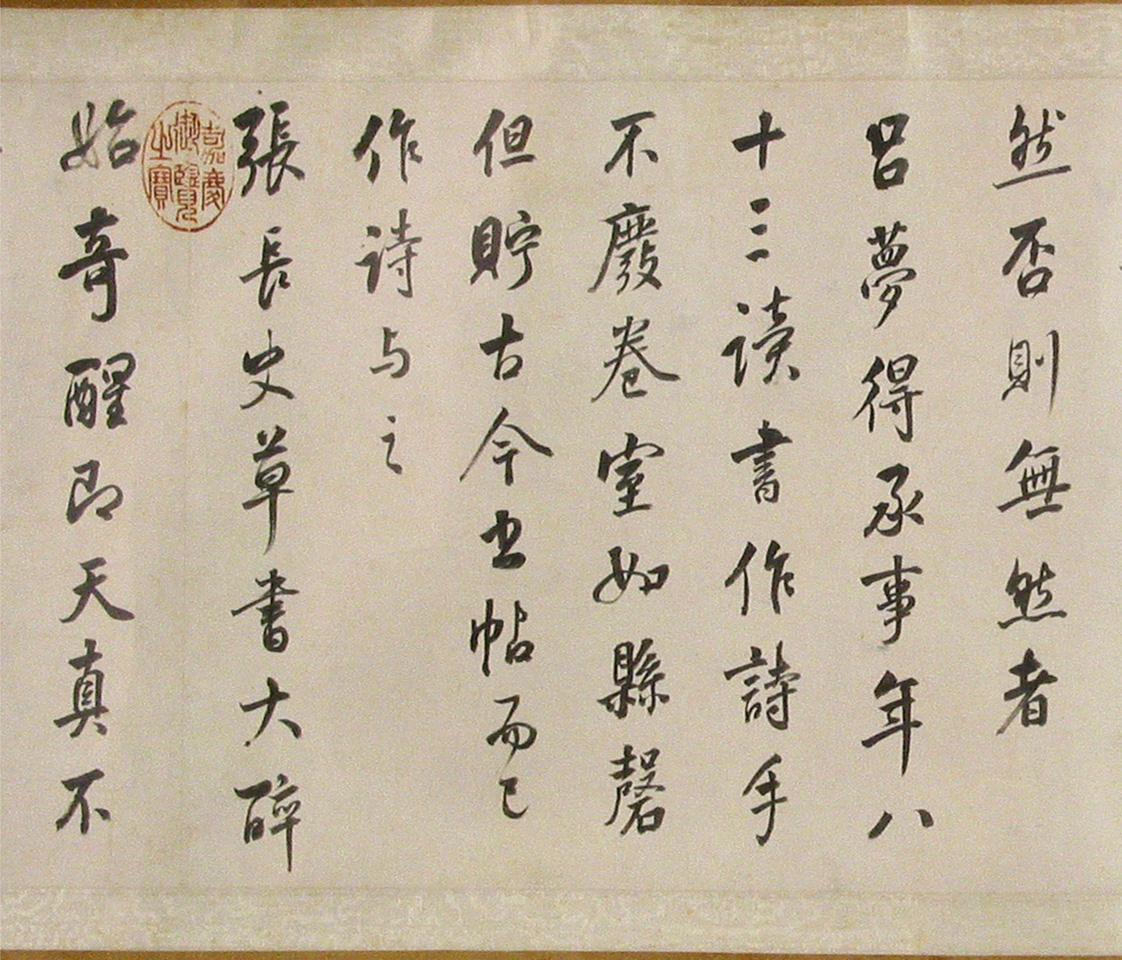 然否則無然者
呂夢得承事年八
十三讀書作詩手
不廢卷室如縣磬
但貯古今书帖而已
作诗与之
張長史草書大醉
嘉慶御覽之寶
始奇醒即天真不